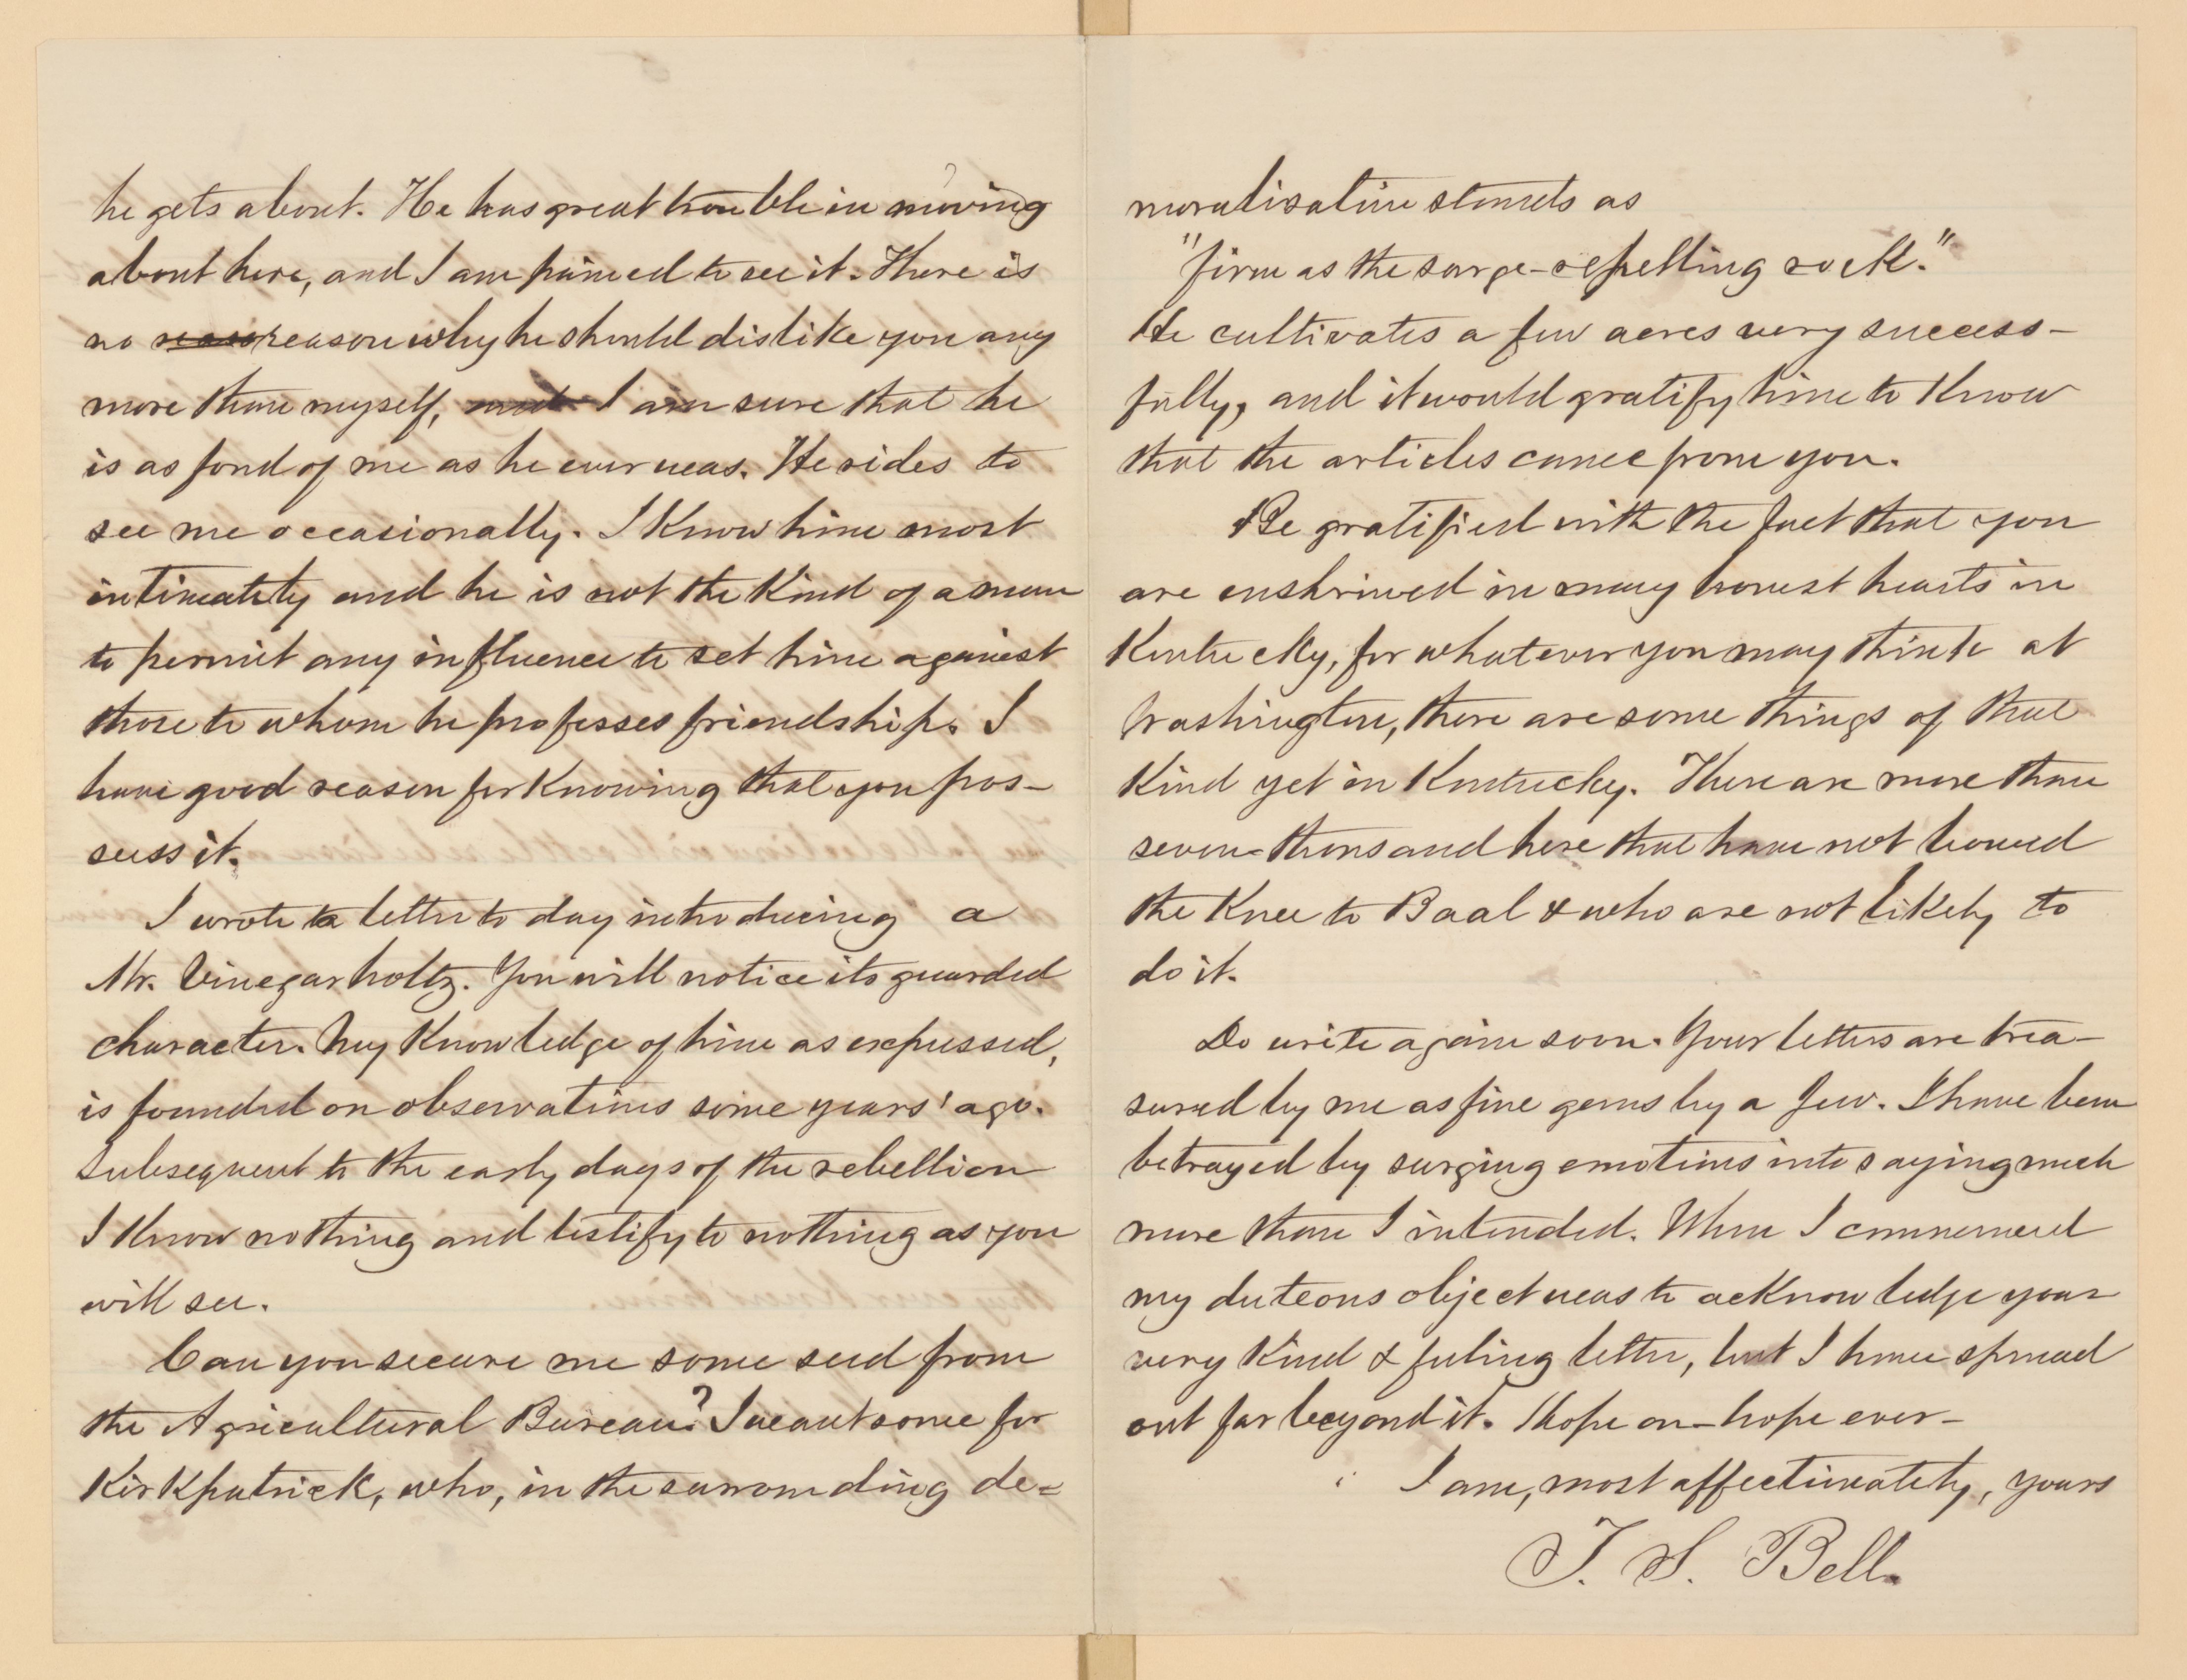 he gets about. He has great trouble in moving
about here, and I am pained to see it. There is
no reason why he should dislike you any
more than myself, I am sure that he
is as fond of me as he ever was. He rides to
see me occasionally. I Know him most
intimately and he is not the Kind of a man
to permit any influence to set him against
those to whom he professes friendship. I
have good reason for Knowing that you pos-
sess it.
I wrote a letter to day introducing a
Mr. Vinegarholtz. You will notice its guarded
character. My Knowledge of him as expressed,
is founded on observations some years' ago.
Subsequent to the early days of the rebellion
I Know nothing and testify to nothing as you
will see.
Can you secure me some seed from
the Agricultural Bureau? I want some for
Kirkpatrick, who, in the surrounding de=
moralisation stands as
"firm as the surge-repelling rock."
He cultivates a few acres very success-
fully, and it would gratify him to Know
that the articles came from you.
Be gratified with the fact that you
are enshrined in many honest hearts in
Kentucky, for whatever you may think at
Washington, there are some things of that
Kind yet in Kentucky. There are more than
seven-thousand here that have not bowed
the Knee to Baal & who are not likely to
do it.
Do write again soon. Your letters are trea-
sured by me as fine gems by a few. I have been
betrayed by surging emotions into saying much
more than I intended. When I commenced
my duteous object was to acKnowledge your
very Kind & feeling letter, but I have spread
out far beyond it. Hope on - hope ever-
I am, most affectionately, yours
T. S. Bell.